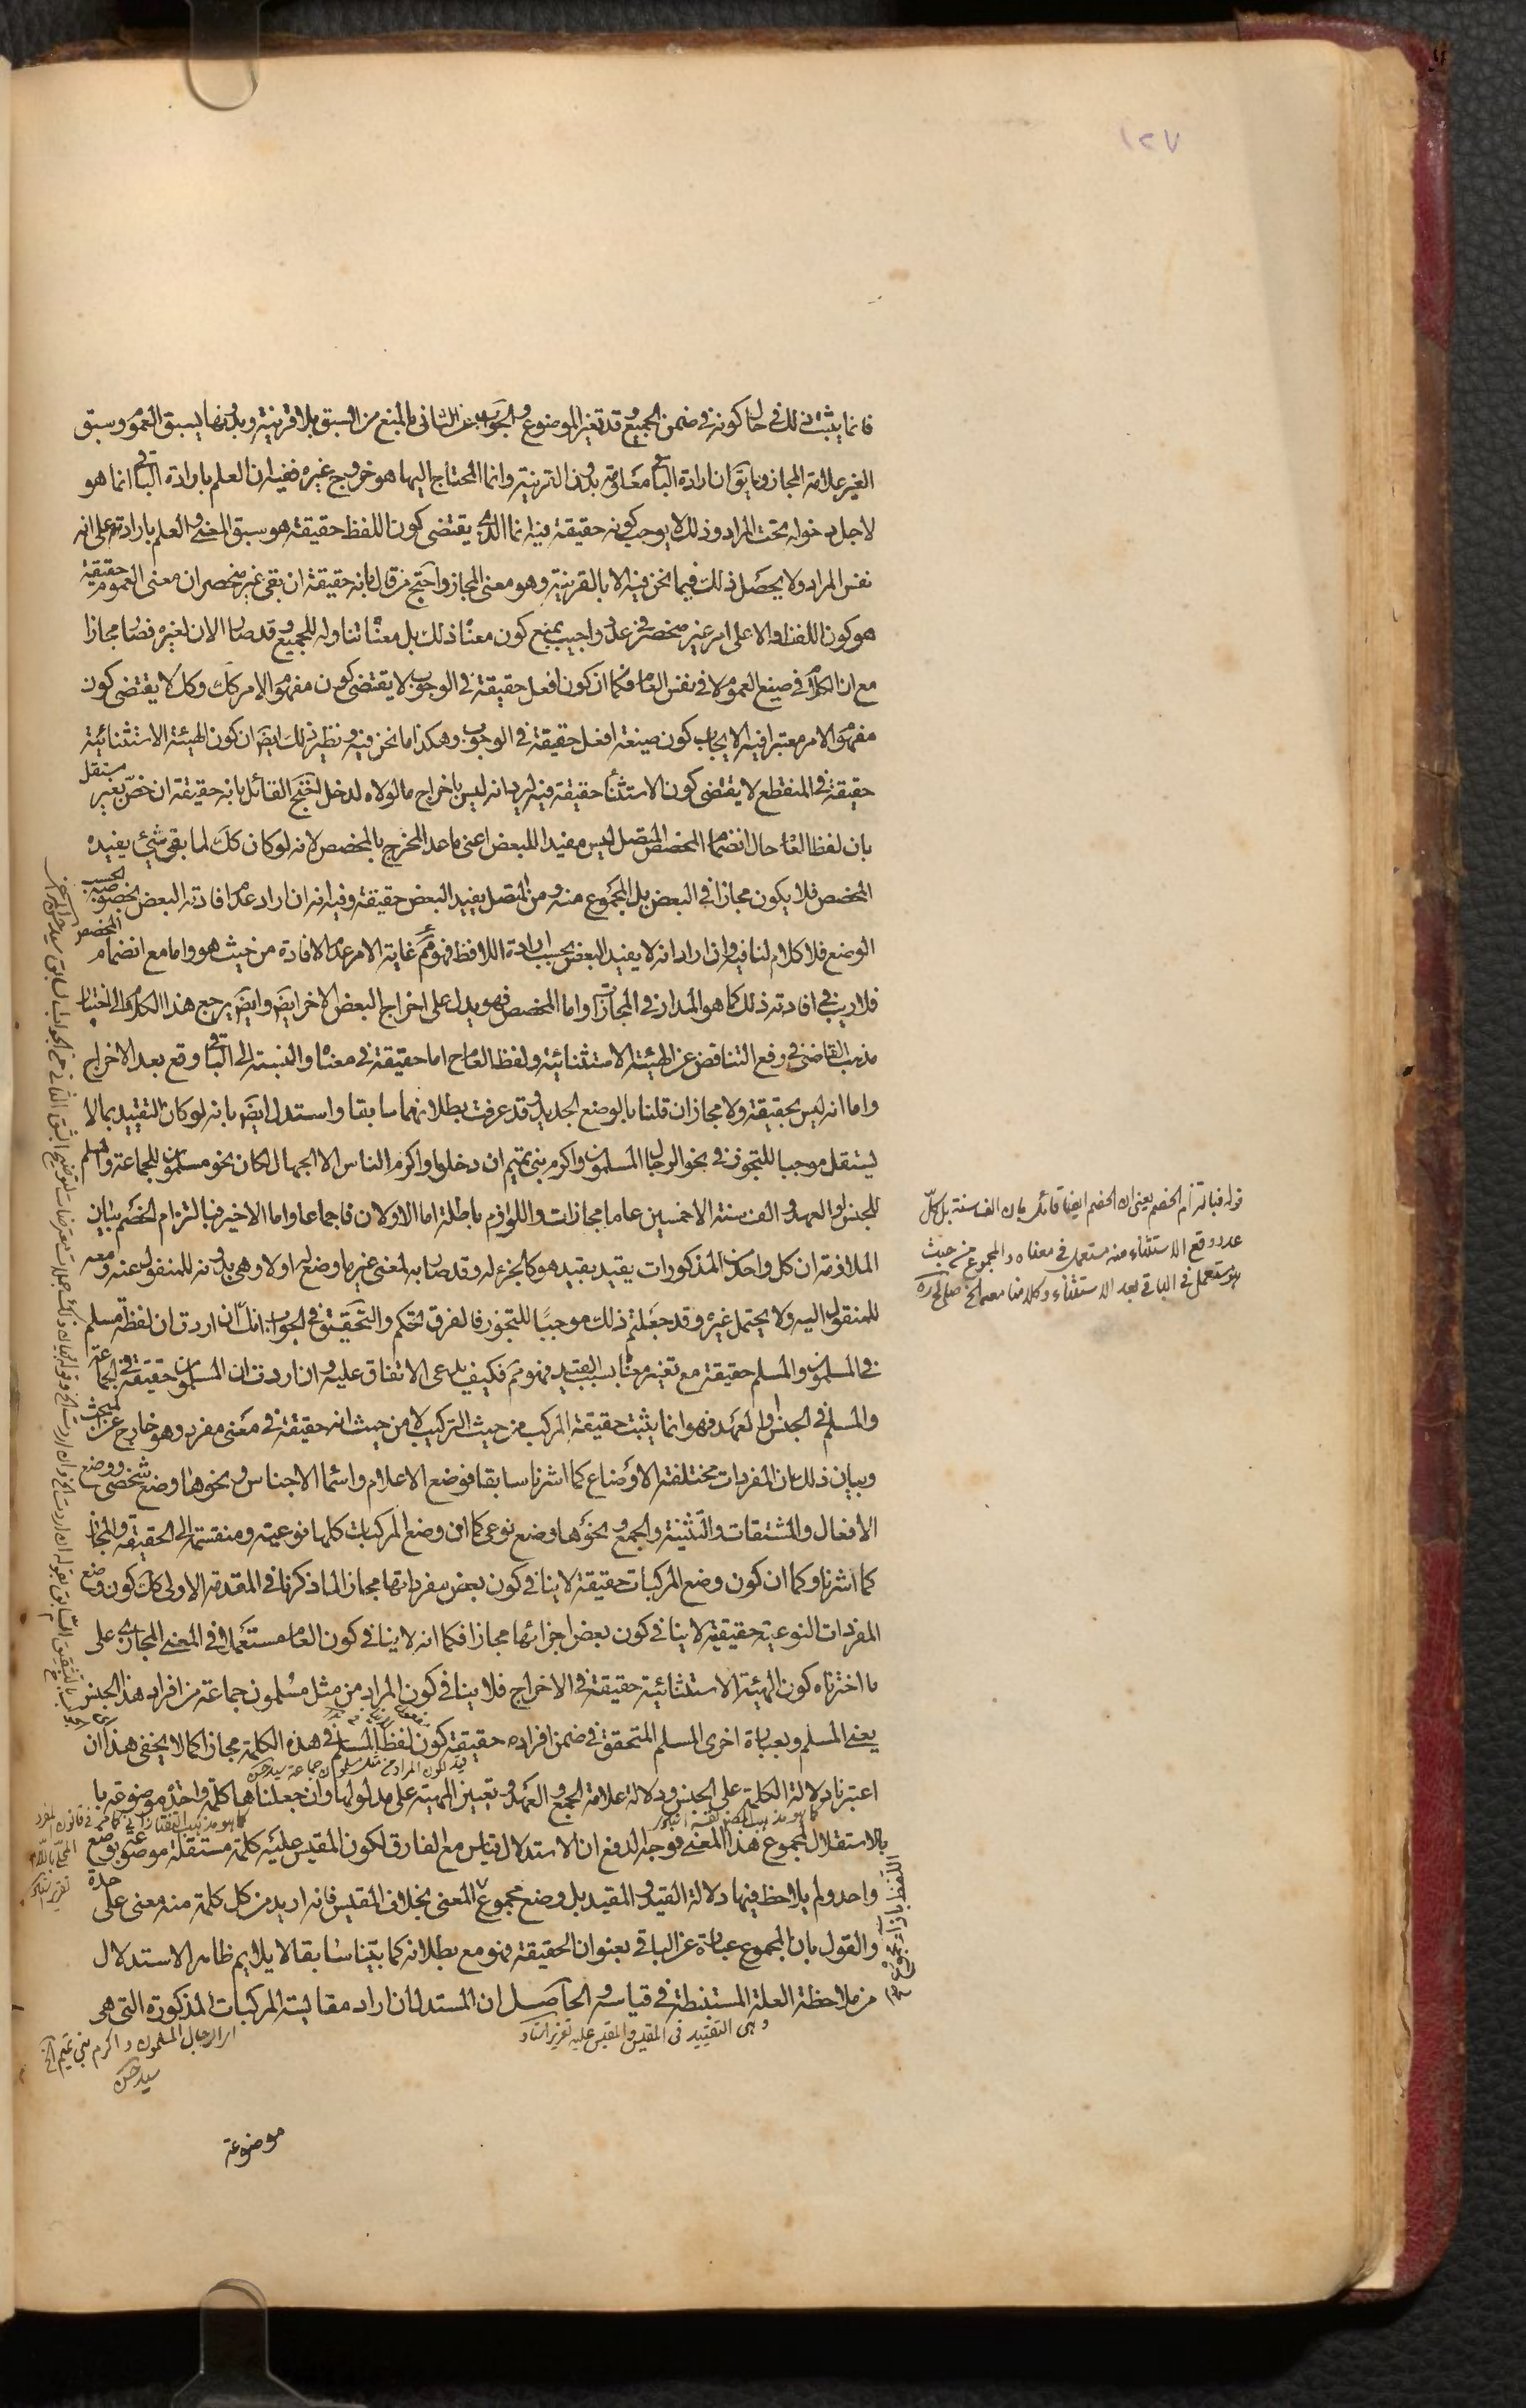 ١٢٧
فانما يثبت ذلك في حال كونه في ضمن الجميع وقد تغير الموضوع والجواب عن الثاني بالمنع من السبق بلا قرينة وبدونها يسبق العموم وسبق
الغير علامة المجاز وما يق ان ارادة الباقي معلومة بدون القرينة وانما المحتاج اليها هو خروج غيره ففيه ان العلم بارادة الباقي انما هو
لاجل دخوله تحت المراد وذلك لا يوجب كونه حقيقة فيه انما الذي يقتضي كون اللفظ حقيقة هو سبق المعنى والعلم بارادته على انه
نفس المراد ولا يحصل ذلك فيما نحن فيه الا بالقرينة وهو معنى المجاز واحتج من قال بانه حقيقة ان بقي غير منحصر ان معنى العموم حقيقة
هو كون اللفظ دالا على امر غير منحصر في عدد واجيب بمنع كون معناه ذلك بل معناه تناوله للجميع وقد صار الان لغيره فصار مجازا
مع ان الكلام في صيغ العموم لا في نفس العام فكما ان كون افعل حقيقة في الوجوب لا يقتضي كون مفهوم الامر كك وكك لا يقتضي كون
مفهوم الامر معتبرا فيه الايجاب كون صيغة افعل حقيقة في الوجوب وهكذا ما نحن فيه ونظير ذلك ايض ان كون الهيئة الاستثنائية
حقيقة في المنقطع لا يقتضي كون الاستثناء حقيقة فيه لبداهة انه ليس باخراج ما لولاه لدخل احتج القائل بانه حقيقة ان خص بغير مستقل
بان لفظ العام حال انضمام المخصص المتصل ليس مفيدا للبعض اعني ما عدا المخرج بالمخصص لانه لو كان كك لما بقي شيء يفيده
المخصص فلا يكون مجازا في البعض بل المجموع منه ومن المتصل يفيد البعض حقيقة وفيه انه ان اراد عدم افادته البعض بخصوصه بحسب
الوضع فلا كلام لنا فيه وان اراد انه لا يفيد البعض بحسب ارادة اللافظ فهو مم غاية الامر عدم الافادة من حيث هو واما مع انضمام المخصص
فلا ريب في افادته ذلك كما هو المدار في المجازات واما المخصص فهو يدل على اخراج البعض الاخر ايض وايض يرجع هذا الكلام الى اختيار
مذهب القاضي في رفع التناقض عن الهيئة الاستثنائية ولفظ العام ح اما حقيقة في معناه والنسبة الى الباقي وقع بعد الاخراج
واما انه ليس بحقيقة ولا مجاز ان قلنا بالوضع الجديد وقد عرفت بطلانهما سابقا واستدل ايض بانه لو كان التقييد بما لا
يستقل موجبا للتجوز في نحو الرجال المسلمون واكرم بني تميم ان دخلوا واكرم الناس الا الجهال لكان نحو مسلمون للجماعة والمسلم
للجنس او العهد والف سنة الا خمسين عاما مجازات واللوازم باطلة اما الاولان فاجماعا واما الاخير فبالتزام الخصم بيان
الملازمة ان كل واحد من المذكورات يقيد بقيد هو كالجزء له وقد صار به لمعنى غير ما وضع له اولا وهي بدونه للمنقول عنه ومعه
للمنقول اليه ولا يحتمل غيره وقد جعلتم ذلك موجبا للتجوز فالفرق تحكم والتحقيق في الجواب انك ان اردت ان لفظة مسلم
في المسلمون والمسلم حقيقة مع تغير معناه بسبب القيد فهو مم فكيف يدعى الاتفاق عليه وان اردت ان المسلمون حقيقة في الجماعة
والمسلم في الجنس او العهد فهو انما يثبت حقيقة المركب من حيث التركيب لا من حيث انه حقيقة في معنى مفرد وهو خارج عن المبحث
وبيان ذلك ان المفردات مختلفة الاوضاع كما اشرنا سابقا فوضع الاعلام واسماء الاجناس ونحوها وضع شخصي ووضع
الافعال والمشتقات والتثنية والجمع ونحوها وضع نوعي كما ان وضع المركبات كلها نوعية ومنقسمة الى الحقيقة والمجاز
كما اشرنا وكما ان كون وضع المركبات حقيقة لا ينافي كون بعض مفرداتها مجازا لما ذكرنا في المقدمة الاولى كك كون وضع
المفردات النوعية حقيقية لا ينافي كون بعض اجزائها مجازا فكما انه لا ينافي كون العام مستعملا في المعنى المجازي على
ما اخترناه كون الهيئة الاستثنائية حقيقة في الاخراج فلا ينافي كون المراد من مثل مسلمون جماعة من افراد هذا الجنس
يعني المسلم وبعبارة اخرى المسلم المتحقق في ضمن افراده حقيقة كون لفظ المسلم في هذه الكلمة مجازا كما لا يخفى هذا ان
قيد لكون المراد من مثل مسلمون جماعة سيد حسن
اعتبرنا دلالة الكلمة على الجنس ودلالة علامة الجمع والعهد وتعيين المهية على مدلولها وان جعلناها كلمة واحدة موضوعة با
كما هو مذهب التفتازاني كما مر في قانون المفرد المحلى باللام
بالاستقلال لمجموع هذا المعنى فوجه الدفع ان الاستدلال قياس مع الفارق لكون المقيس عليه كلمة مستقلة موضوعة بوضع
واحد ولم يلاحظ فيها دلالة القيد والمقيد بل وضع مجموع المعنى بخلاف المقيس فانه اريد من كل كلمة منه معنى على حدة
والقول بان المجموع عبارة عن الباقي بعنوان الحقيقة فهو مع بطلانه كما بينا سابقا لا يلايم ظاهر الاستدلال
من ملاحظة العلة المستنبطة في قياسه والحاصل ان المستدل ان اراد مقايسة المركبات المذكورة التي هي
وهي التقييد في المقيس والمقيس عليه تقرير استاد
اي الرجال المسلمون واكرم بني تميم الخ
سيد حسن
موضوعة
قوله فبالتزام الخصم يعني ان الخصم ايضا قائل بان الف سنة بل كل
عدد وقع الاستثناء منه مستعمل في معناه والمجموع من حيث
هو مستعمل في الباقي بعد الاستثناء